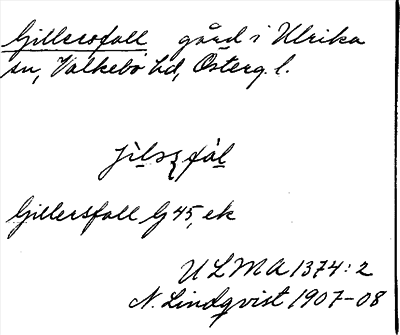 Gillersfall gård i Ulrika
sn, Valkebo hd, Österg. l.
Gillersfall G 45, ek
ULMA 1374:2
N. Lindqvist 1907-08